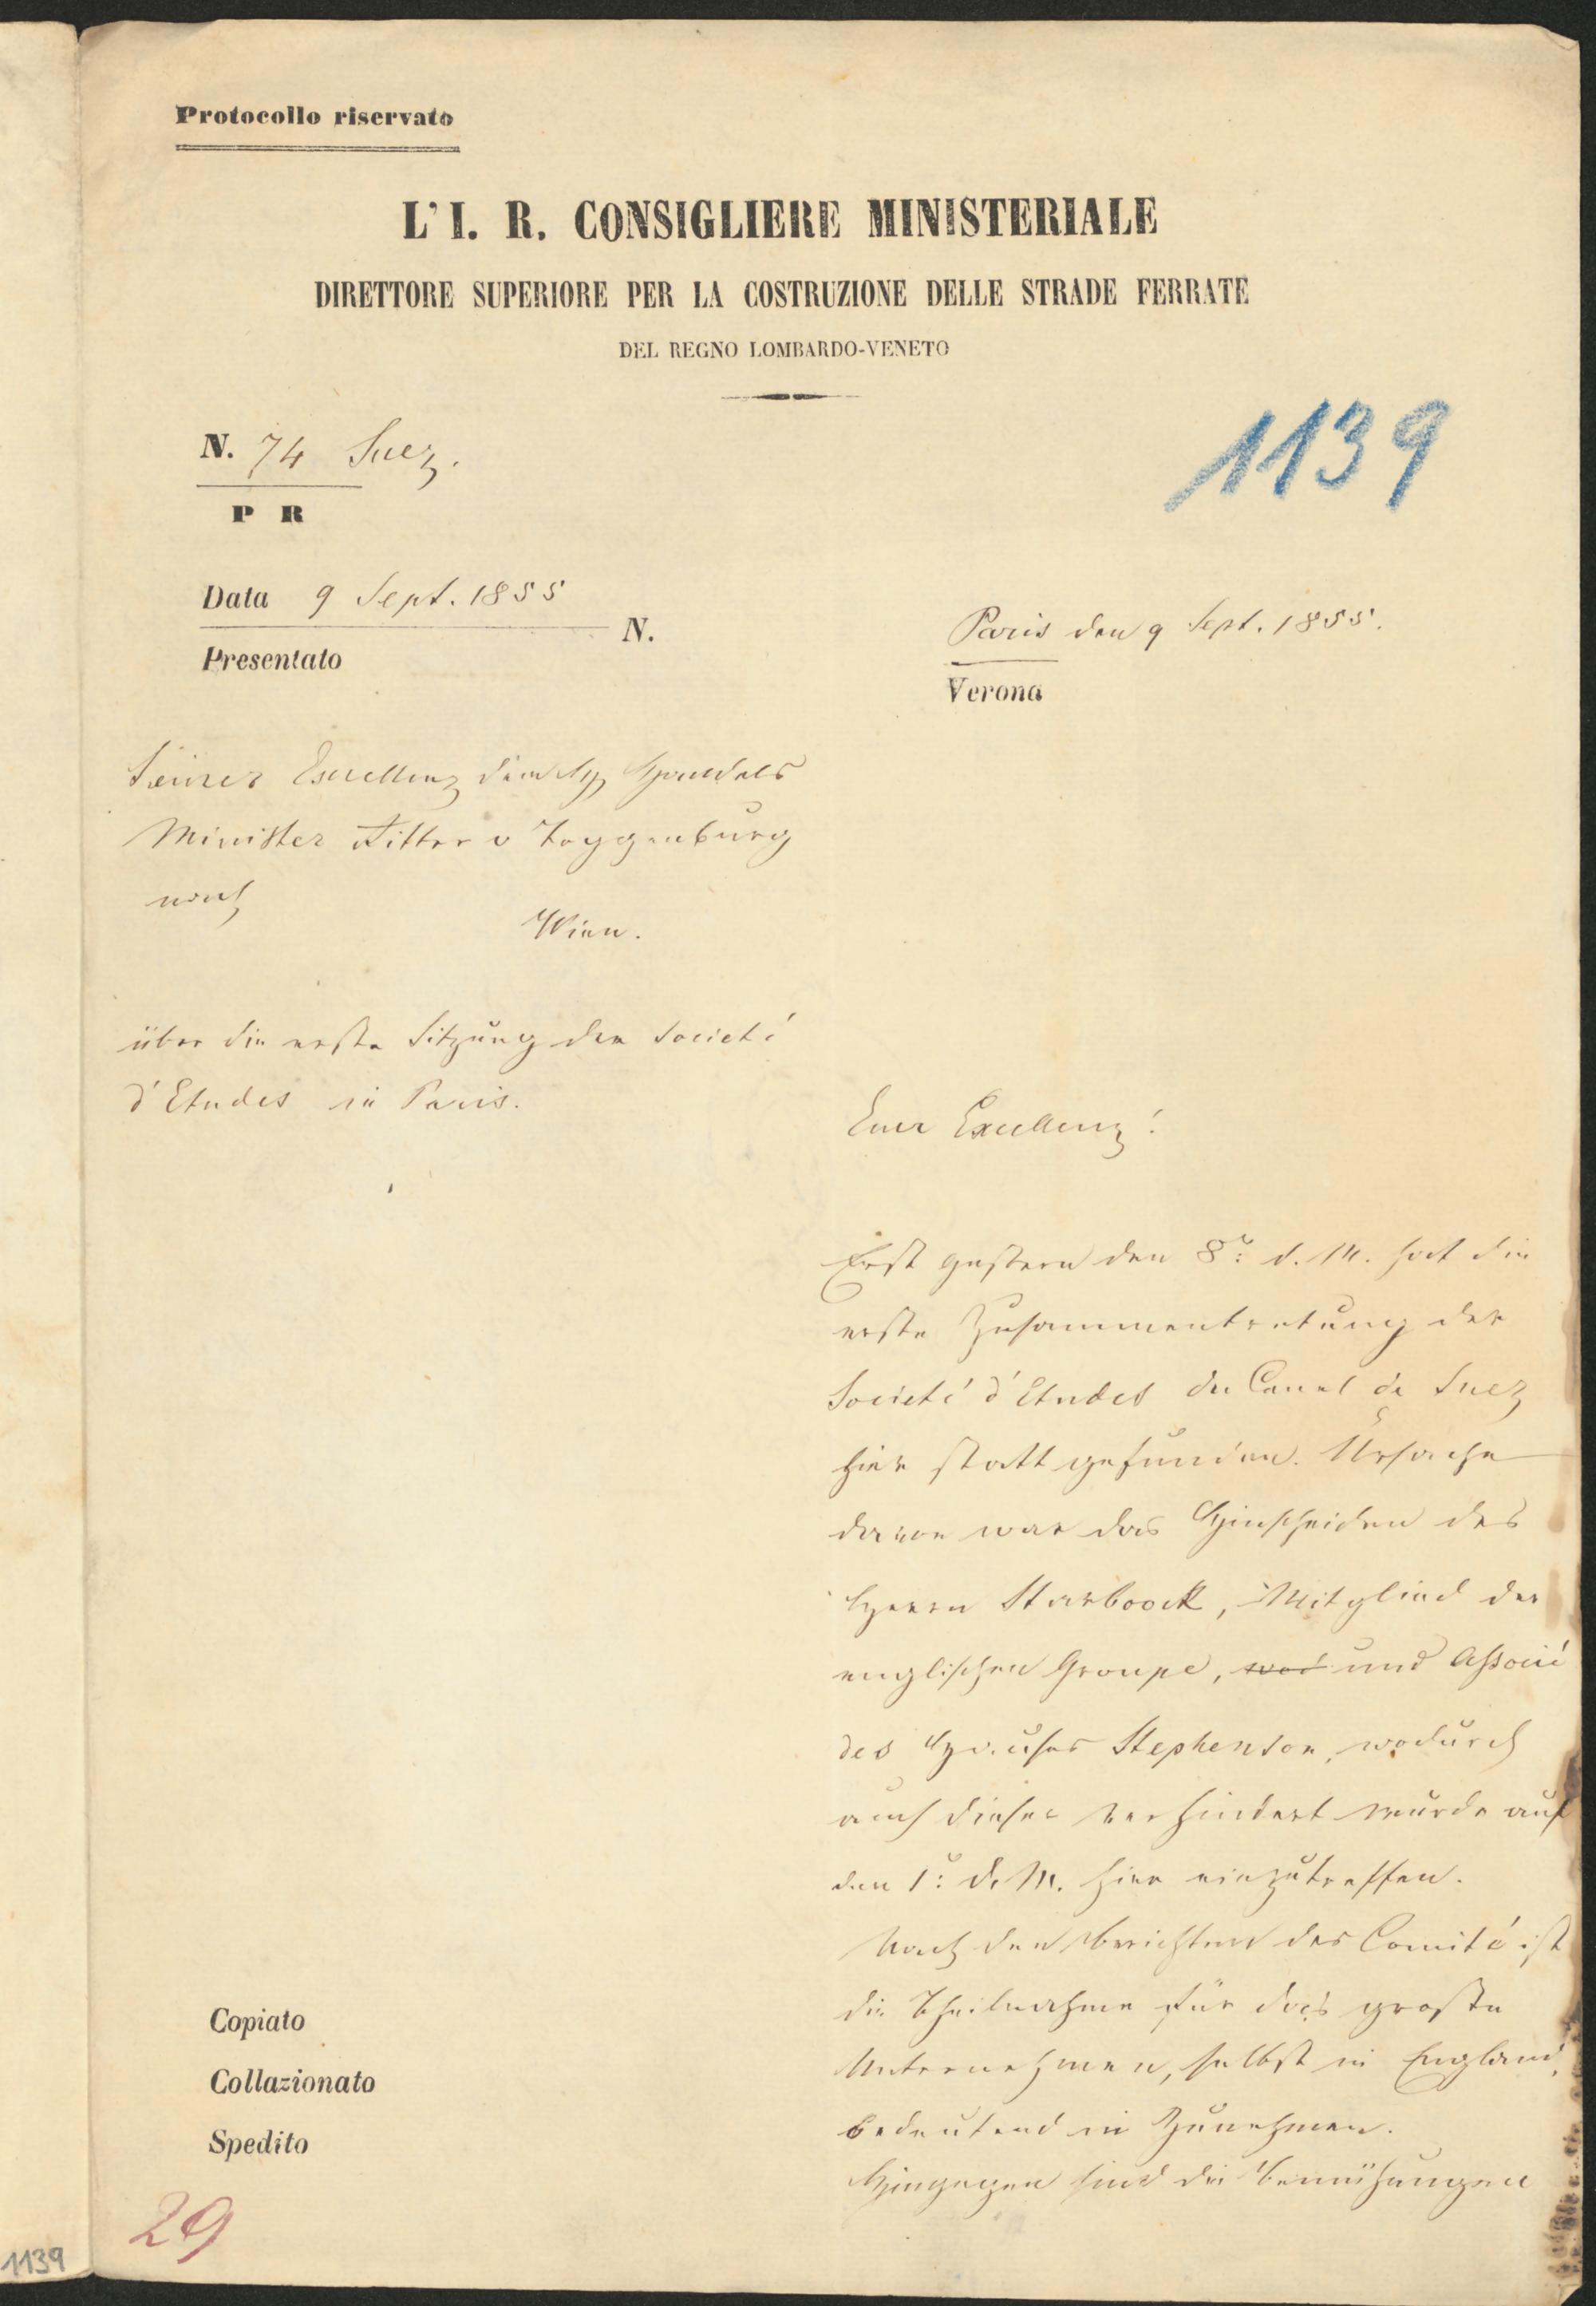 Protocollo riservato
L' I. R. CONSIGLIERE MINISTERIALE
DIRETTORE SUPERIORE PER LA COSTRUZIONE DELLE STRADE FERRATE
DEL REGNO LOMBARDO-VENETO
N. 74 Suez.
P R
1139
Data 9 Sept. 1855
N.
Presentato
Paris den 9 Sept. 1855.
Verona
Seiner Excellenz Handels
Minister Ritter v Toggenburg
nach
Wien.
über die erste Sitzung der Societé
d'Etudes in Paris.
Euer Excellenz!
Erst gestern den 8: d. M. hat die
erste Zusammentretung der
Societé d'Etudes du Canal de Suez
hier statt gefunden. Ursache
davon war das Hinscheiden des
Herrn Starboock, Mitglied der
englischen Groupe, und Associé
des Hauses Stephenson, wodurch
auch dieser verhindert wurde auf
den 1: d. M. hier einzutreffen.
Nach den Berichten des Comité ist
die Theilnahme für das große
Unternehmen, selbst in England,
bedeutend in Zunehmen.
Hingegen sind die Bemühungen
Copiato
Collazionato
Spedito
29
1139